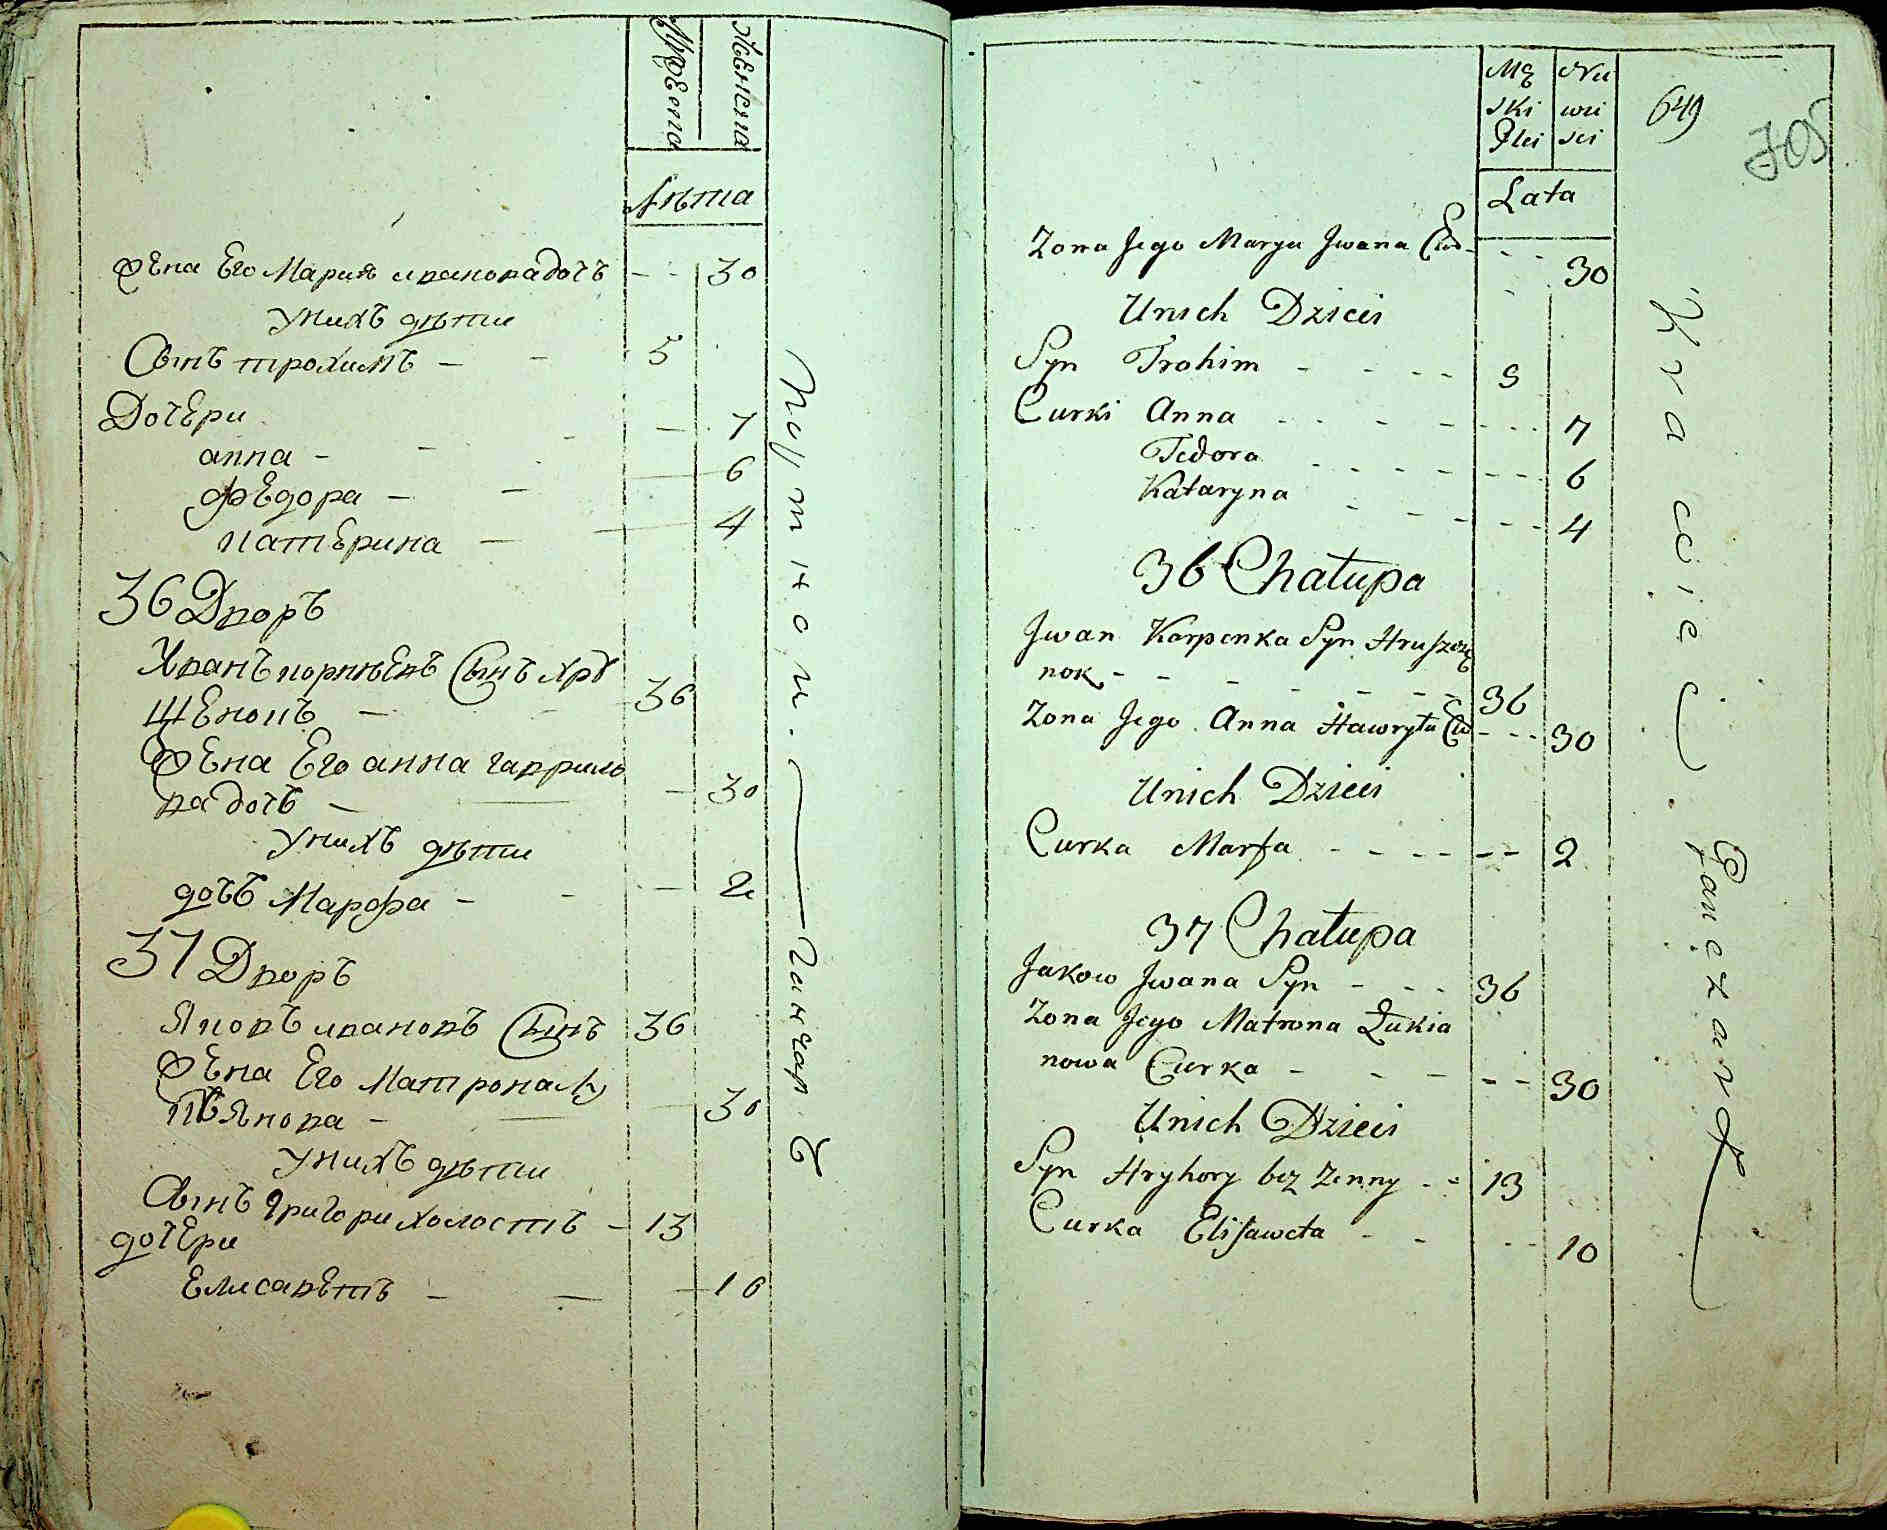 Мужеска
Женска
Лѣта
Жена Его Мария ивановадочь – – 30
Унихъ дѣти
Сынъ трохимъ – – 5
Дочери
анна – – – 7
федора – – 6
катерина – – 4
36 Дворъ
Иванъ карпѣевъ Сынъ хру
щенокъ – – 36
Жена Его анна гаврило
ва дочь – – 30
Унихъ дѣти
дочь Марфа – – – 2
37 Дворъ
Яковъ ивановъ Сынъ 36
Жена Его Матрона лу
кьянова – – 30
Унихъ дѣти
Сынъ григори холостъ – 13
дочери
Елисаветъ – – – 10
Портной.
Ганчаръ
Mę
ski
Płci
Nie
wie
sci
649
705
Lata
Zona Jego Marya Jwana Cur - - - 30
Unich Dzieci
Syn Trohim - - - - 5
Curki Anna - - - - - - 7
Fedora - - - - - - 6
Kataryna - - - - - 4
36 Chałupa
Jwan Karpenka Syn Hruszcze
nok - - - - - - - 36
Zona Jego Anna Hawryła Cu - - - 30
Unich Dzieci
Curka Marfa - - - - - - 2
37 Chałupa
Jakow Jwana Syn - - - 36
Zona Jego Matrona Łukia
nowa Curka - - - - - - 30
Unich Dzieci
Syn Hryhory bez Zenny - - 13
Curka Elisaweta - - - - 10
Krawiec.
Ganczarz